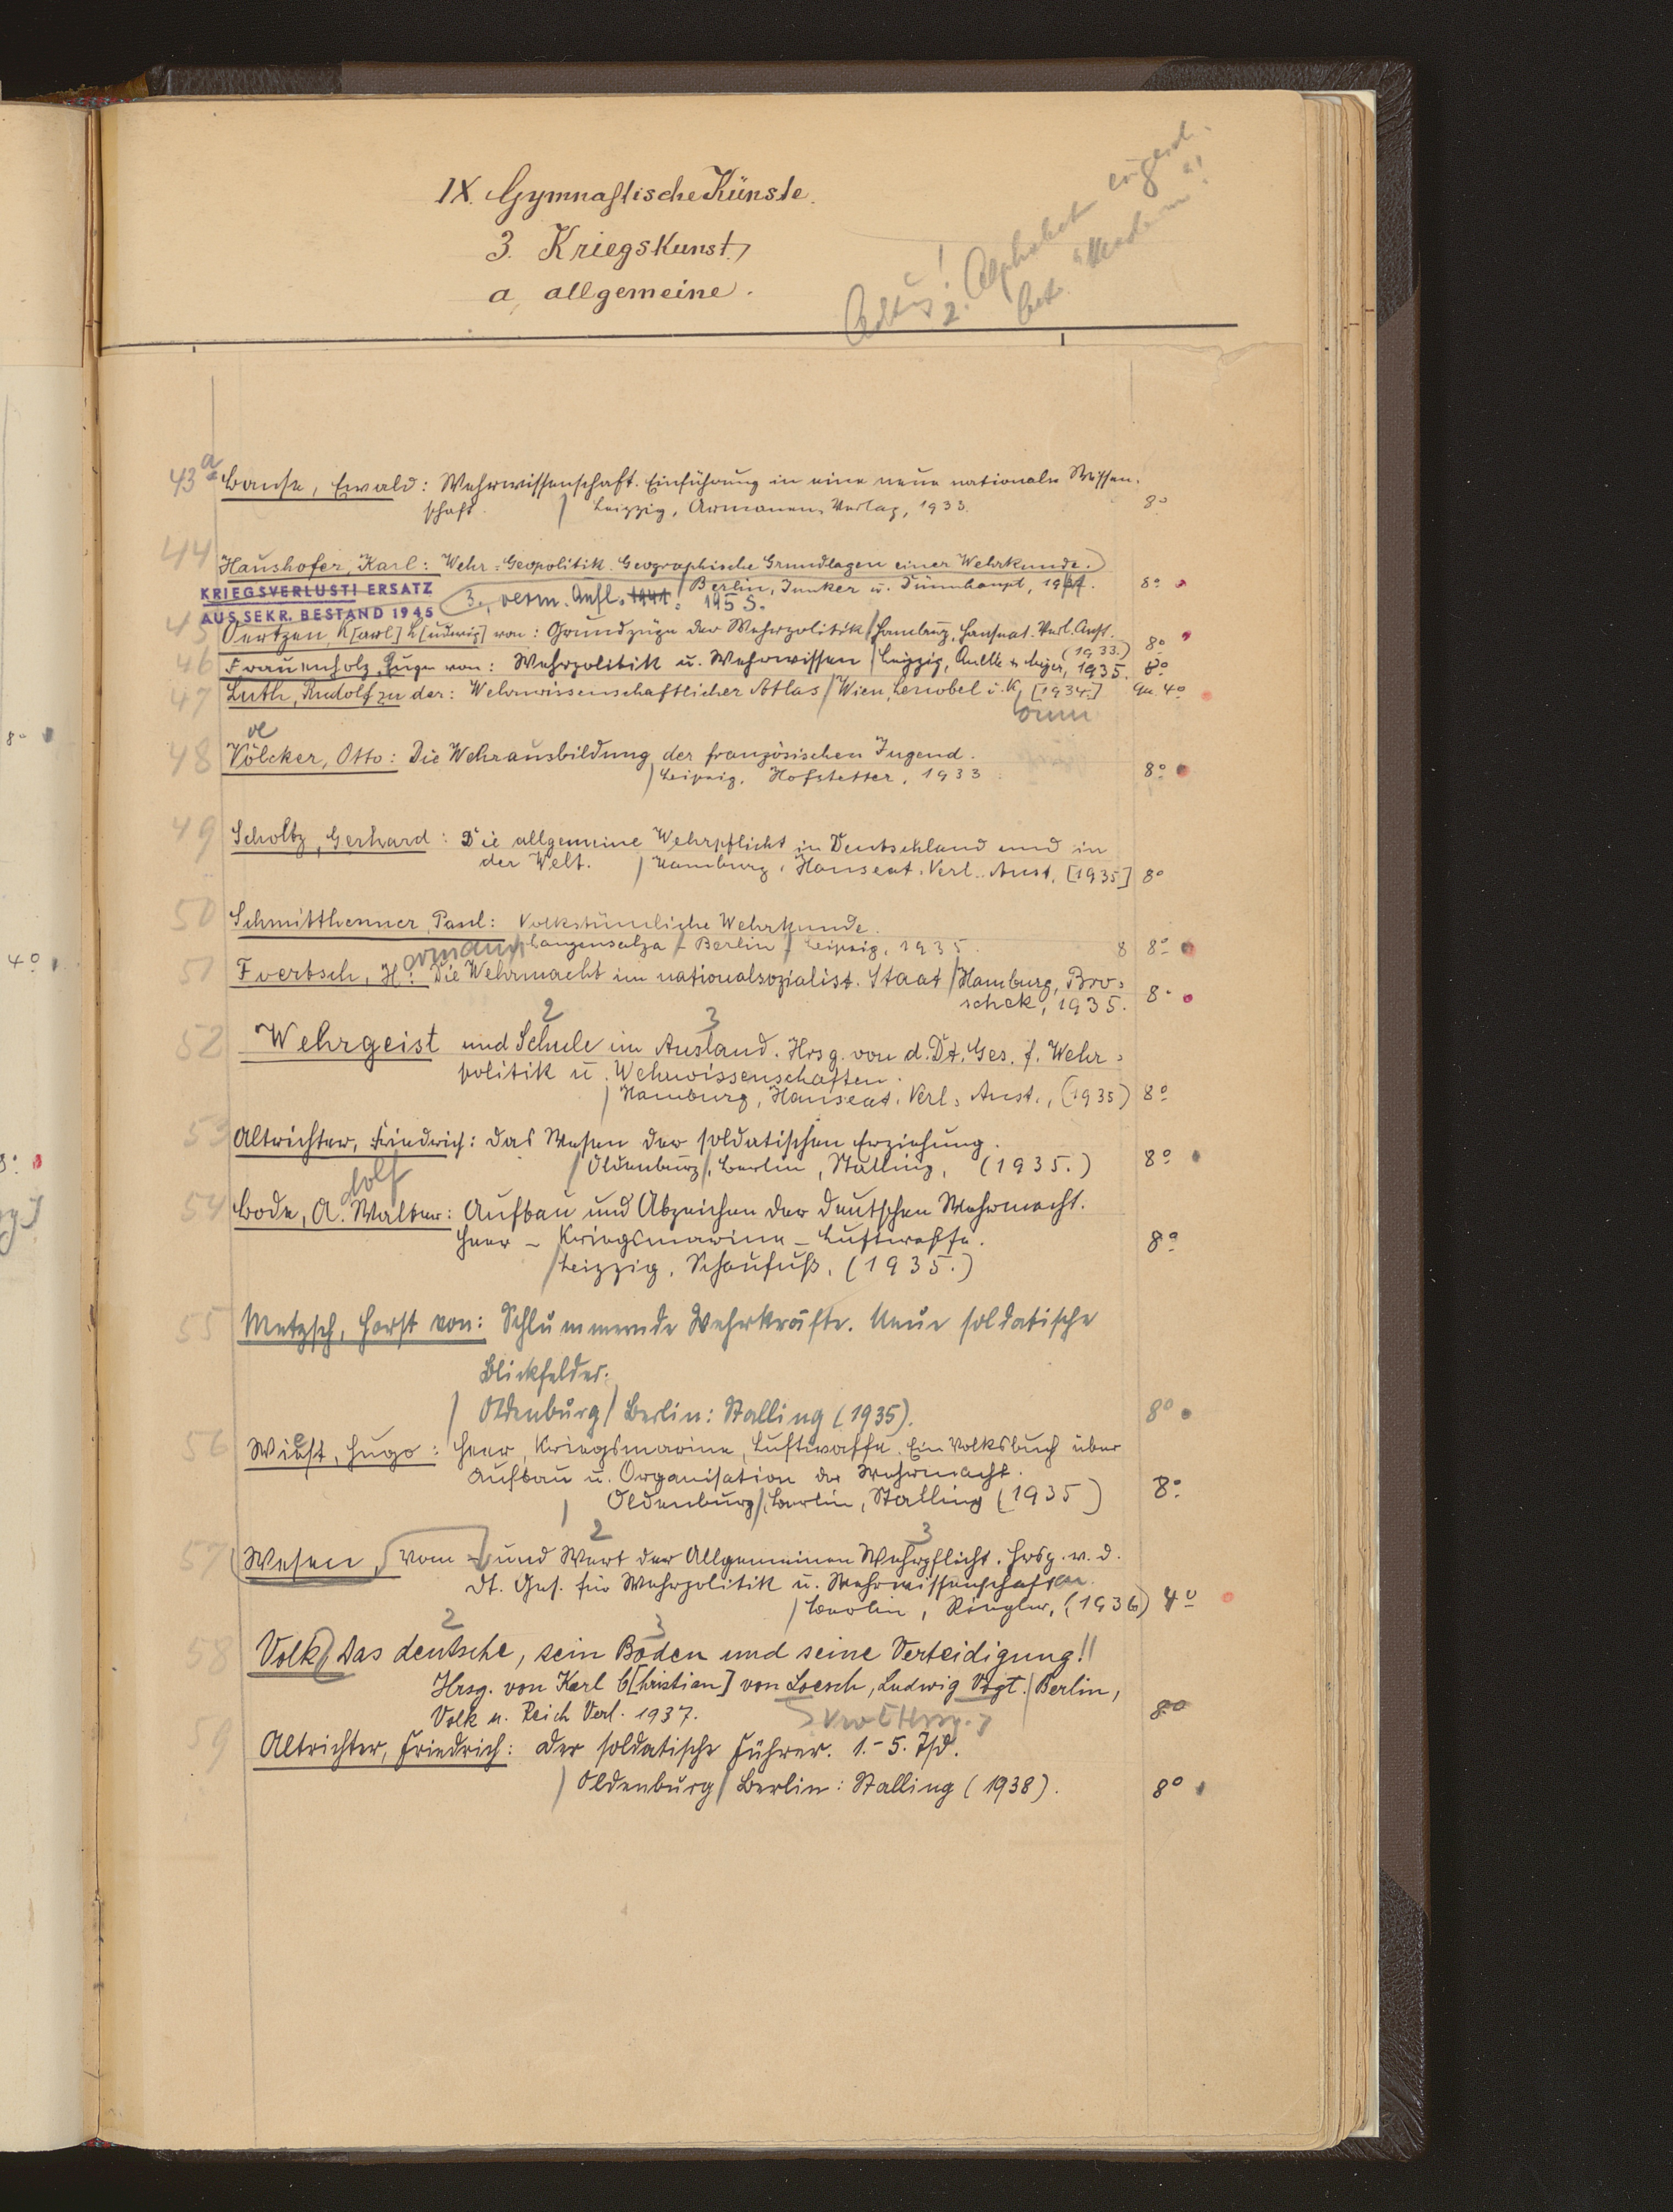 IX. Gymnastische Künste.
3. Kriegskunst
a, allgemeine.
2. Alphabet
43a Banse, Ewald: Wehrwissenschaft. Einführung in eine neue nationale Wissen-
schaft. / Leipzig, Armanen-Verlag, 1933. 8°
44 Haushofer, Karl: Wehr-Geopolitik. Geographische Grundlagen einer Wehrkunde.
KRIEGSVERLUST! ERSATZ / Berlin, Junker u. Dünnhaupt, 8°
AUS SEKR. BESTAND 1945 3., verm. Aufl. 1941. 195 S.
45 Oertzen, K[arl] L[udwig] von: Grundzüge der Wehrpolitik / Hamburg, Hanseat. Verl. Anst.
(1933.) 8°
46 Frauenholz, Eugen von: Wehrpolitik u. Wehrwissen / Leipzig, Quelle & Meyer, 1935. 8°
47 Luth, Rudolf zu der: Wehrwissenschaftlicher Atlas / Wien, [1934.] Qu. 4°
48 Völcker, Otto: Die Wehrausbildung der französischen Jugend.
oe
/ Leipzig, Hofstetter, 1933 8°
49 Scholtz, Gerhard: Die allgemeine Wehrpflicht in Deutschland und in
der Welt. / Hamburg, Hanseat. Verl. Anst. [1935] 8°
50 Schmitthenner, Paul: Volkstümliche Wehrkunde.
Langensalza / Berlin / Leipzig, 1935. 8 8°
51 Foertsch, H.: Die Wehrmacht im nationalsozialist. Staat / Hamburg, Bro-
schek, 1935. 8°
2 3
52 Wehrgeist und Schule im Ausland. Hrsg. von d. Dt. Ges. f. Wehr-
politik u. Wehrwissenschaften.
/ Hamburg, Hanseat. Verl. Anst., (1935) 8°
53 Altrichter, Friedrich: Das Wesen der soldatischen Erziehung.
/ Oldenburg /, Berlin, Stalling, (1935.) 8°
dolf
54 Bode, A. Walter: Aufbau und Abzeichen der deutschen Wehrmacht.
Heer – Kriegsmarine – Luftwaffe. 8°
/ Leipzig, Schaufuß, (1935.)
55 Metzsch, Horst von: Schlummernde Wehrkräfte. Neue soldatische
Blickfelder.
/ Oldenburg / Berlin: Stalling (1935). 8°
56 Wiest, Hugo: Heer, Kriegsmarine, Luftwaffe. Ein Volksbuch über
Aufbau u. Organisation der Wehrmacht.
/ Oldenburg /, Berlin, Stalling (1935) 8°
2 3
57 Wesen, Vom – und Wert der Allgemeinen Wehrpflicht. Hrsg. v. d.
Dt. Ges. für Wehrpolitik u. Wehrwissenschaften.
/ Berlin, (1936) 4°
2 3
58 Volk, Das deutsche, sein Boden und seine Verteidigung!!
Hrsg. von Karl C[hristian] von Loesch, Ludwig Vogt. / Berlin,
Volk u. Reich Verl. 1937. 8°
59 Altrichter, Friedrich: Der soldatische Führer. 1.–5. Tsd.
/ Oldenburg / Berlin: Stalling (1938). 8°